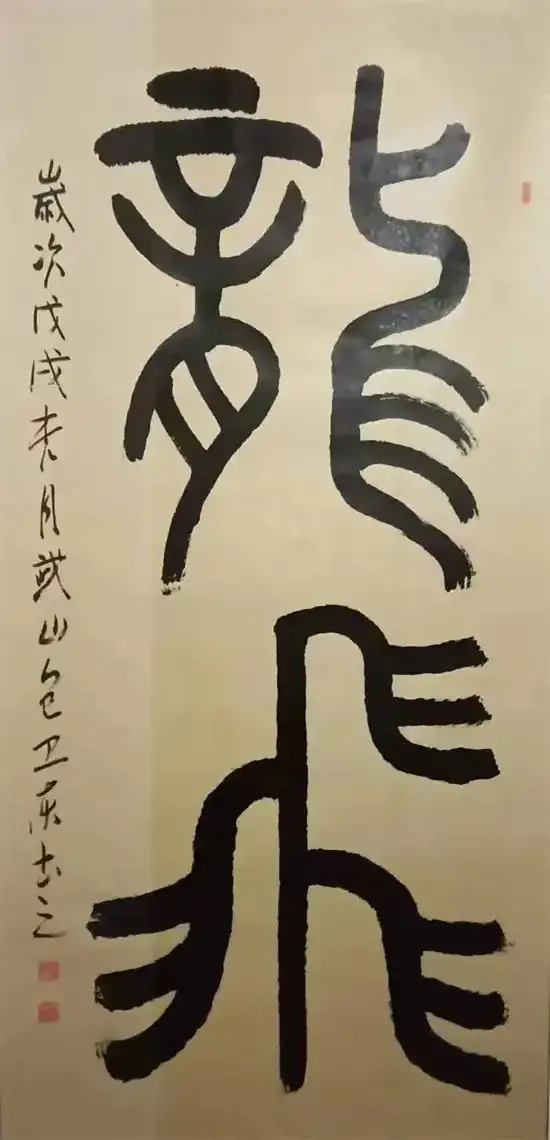 龍飛
歲次戊戌春月武山包卫东書之